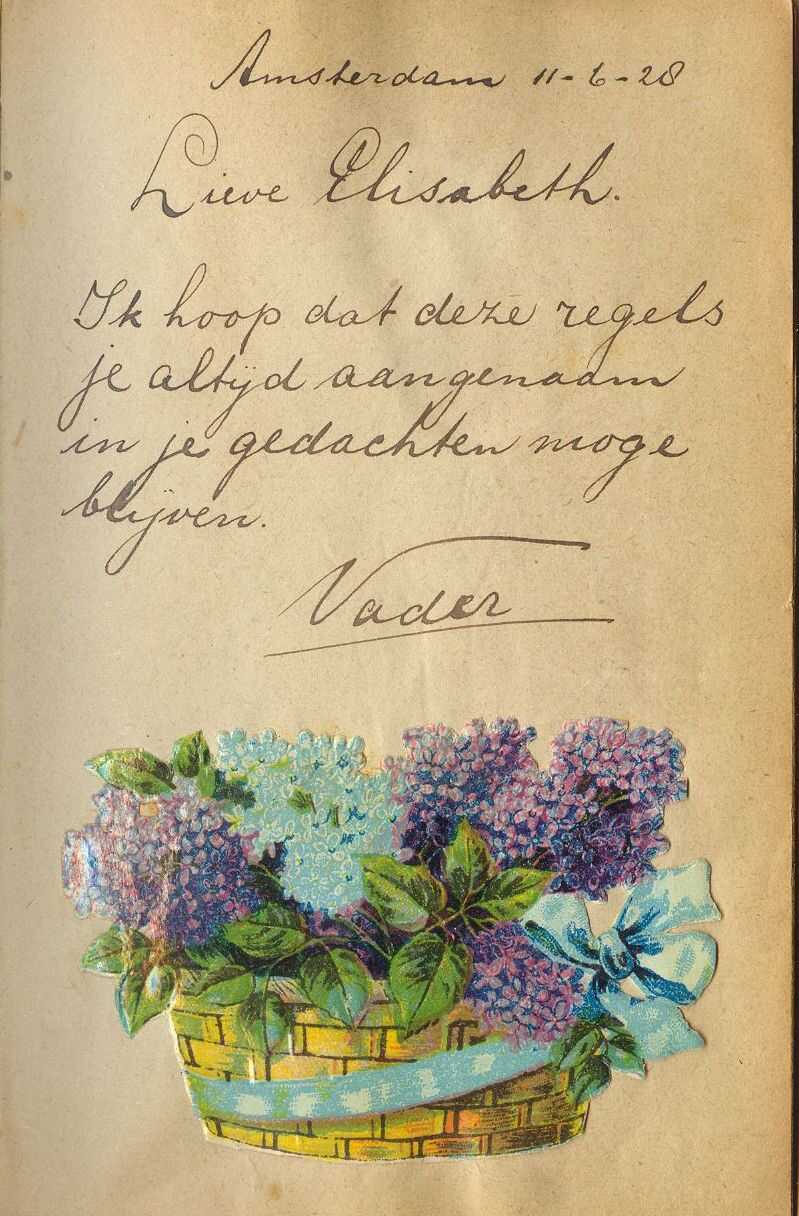 Amsterdam 11-6-28
Lieve Elisabeth.
Ik hoop dat deze regels
je altijd aangenaam
in je gedachten moge
blijven.
Vader